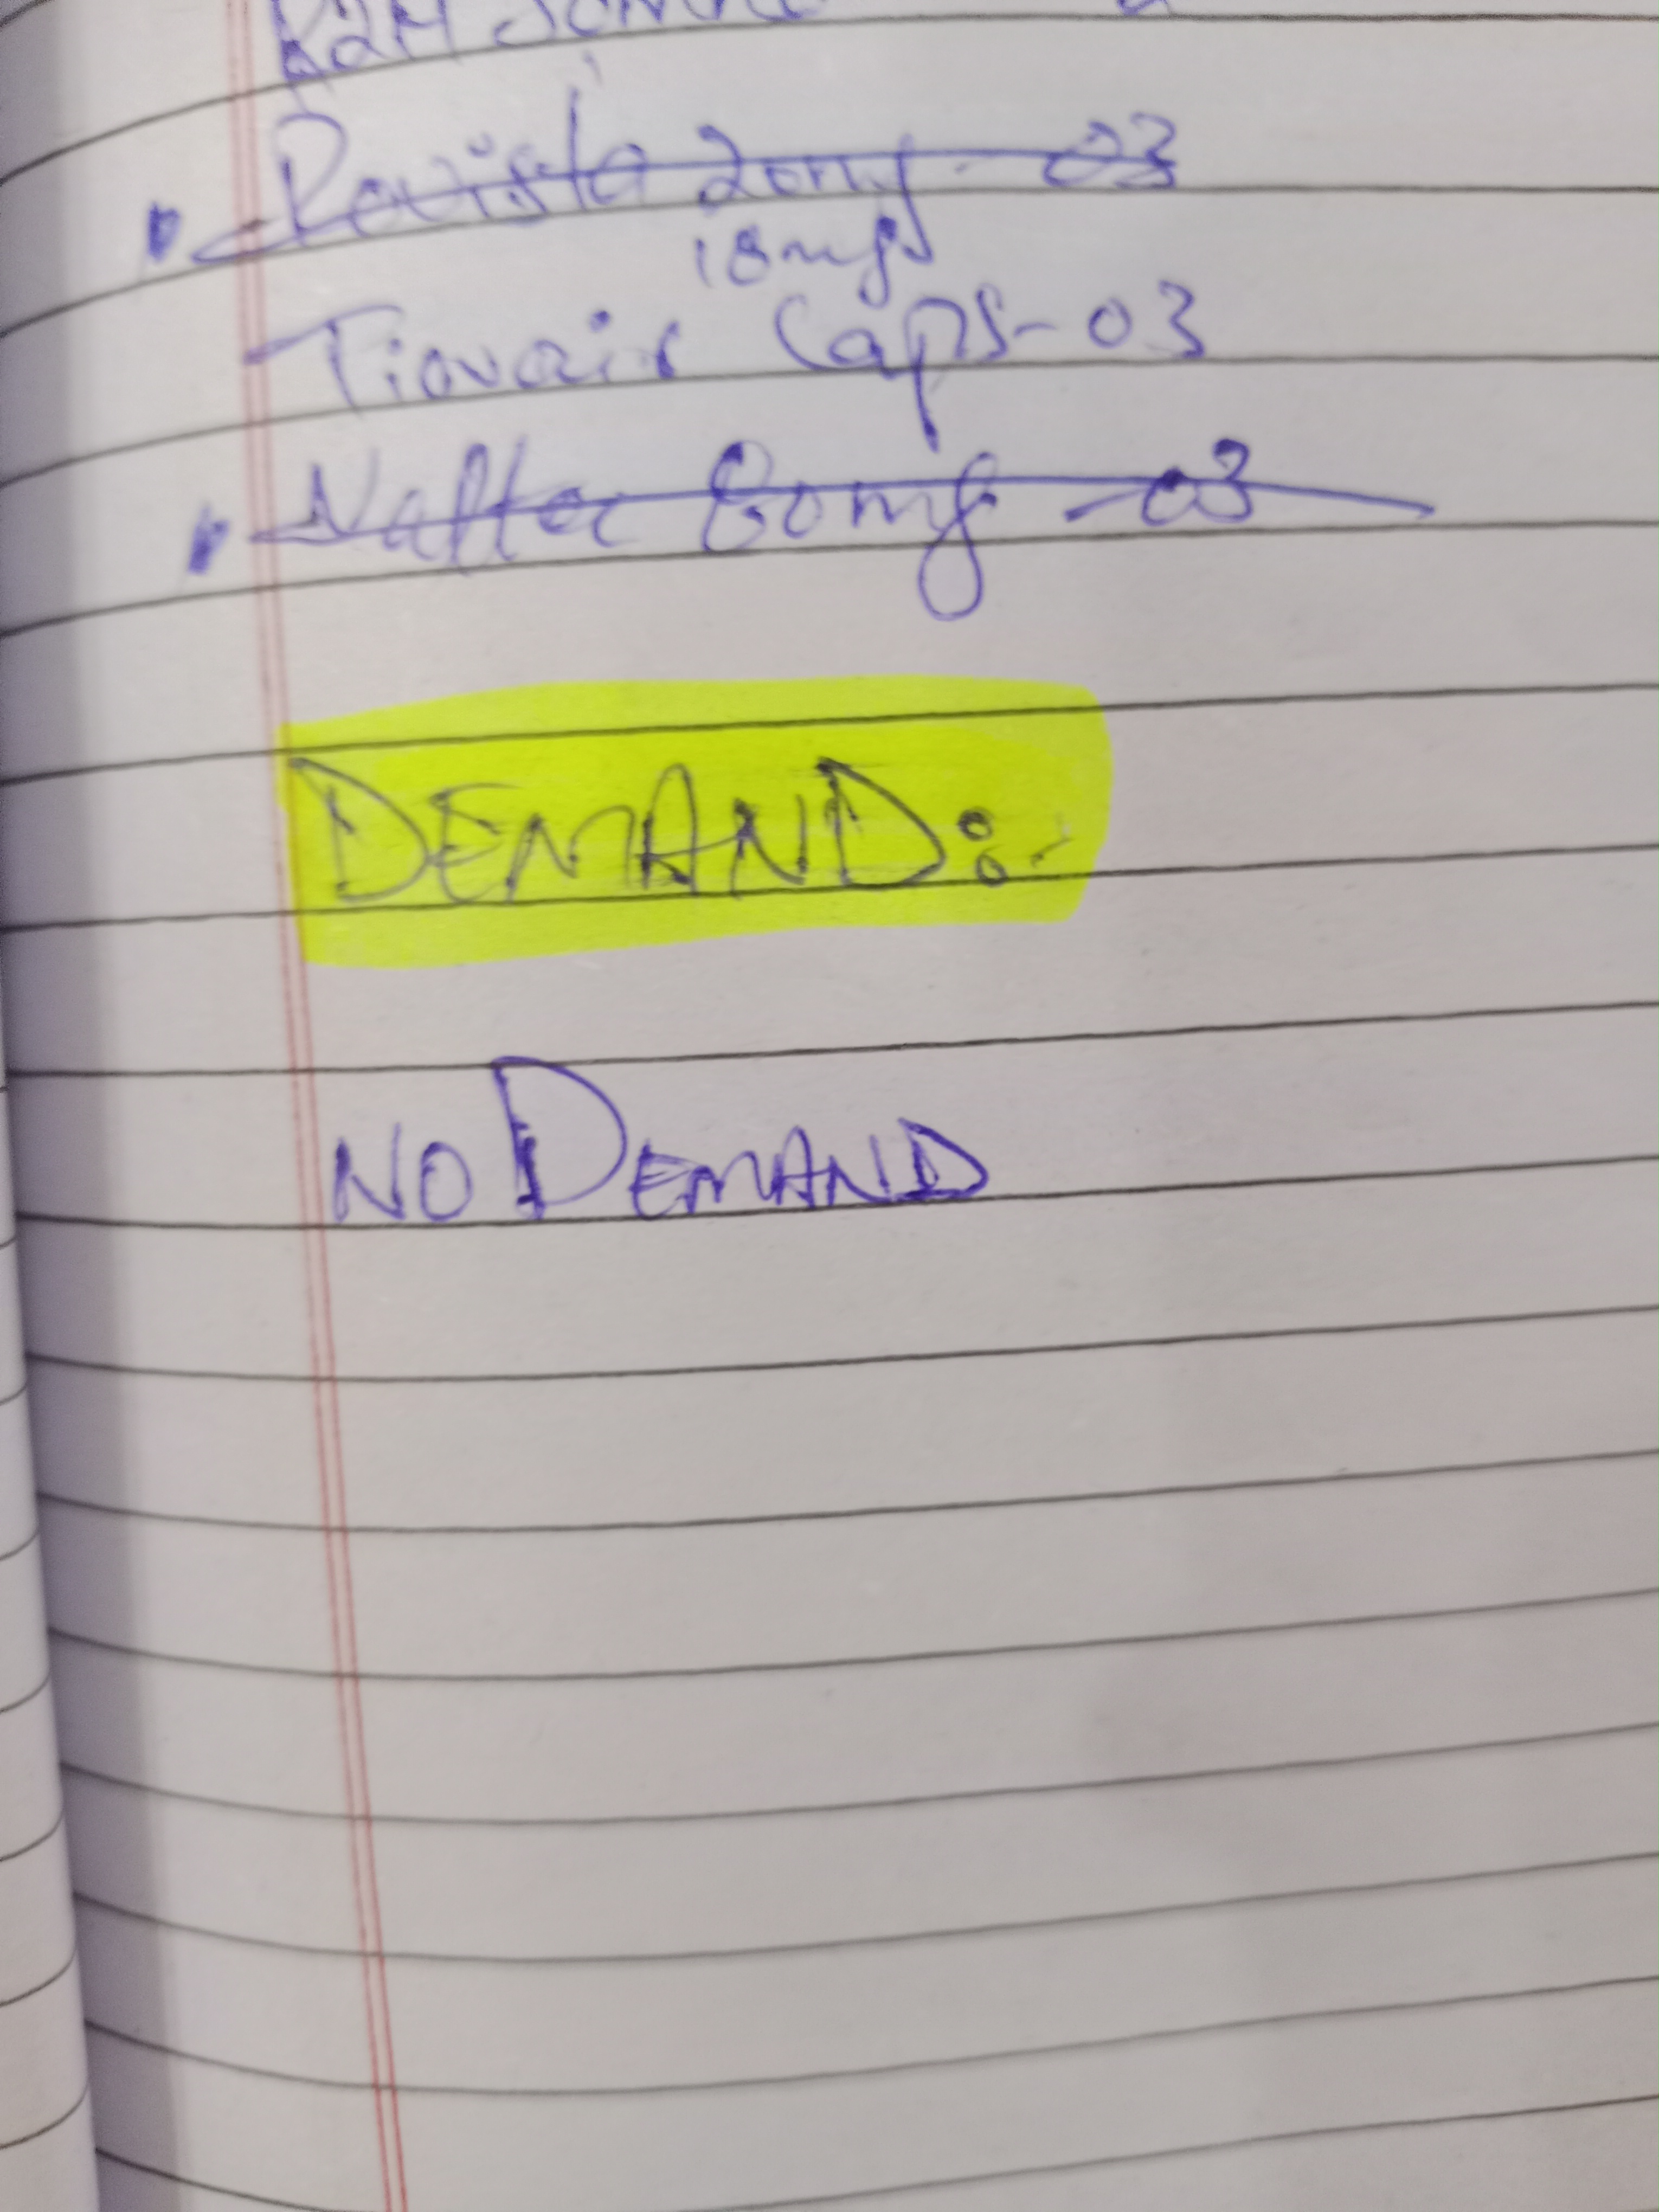 Rovista 20mg - 03
18mg
Tiovair Caps - 03
60mg - 03
DEMAND:-
NO DEMAND